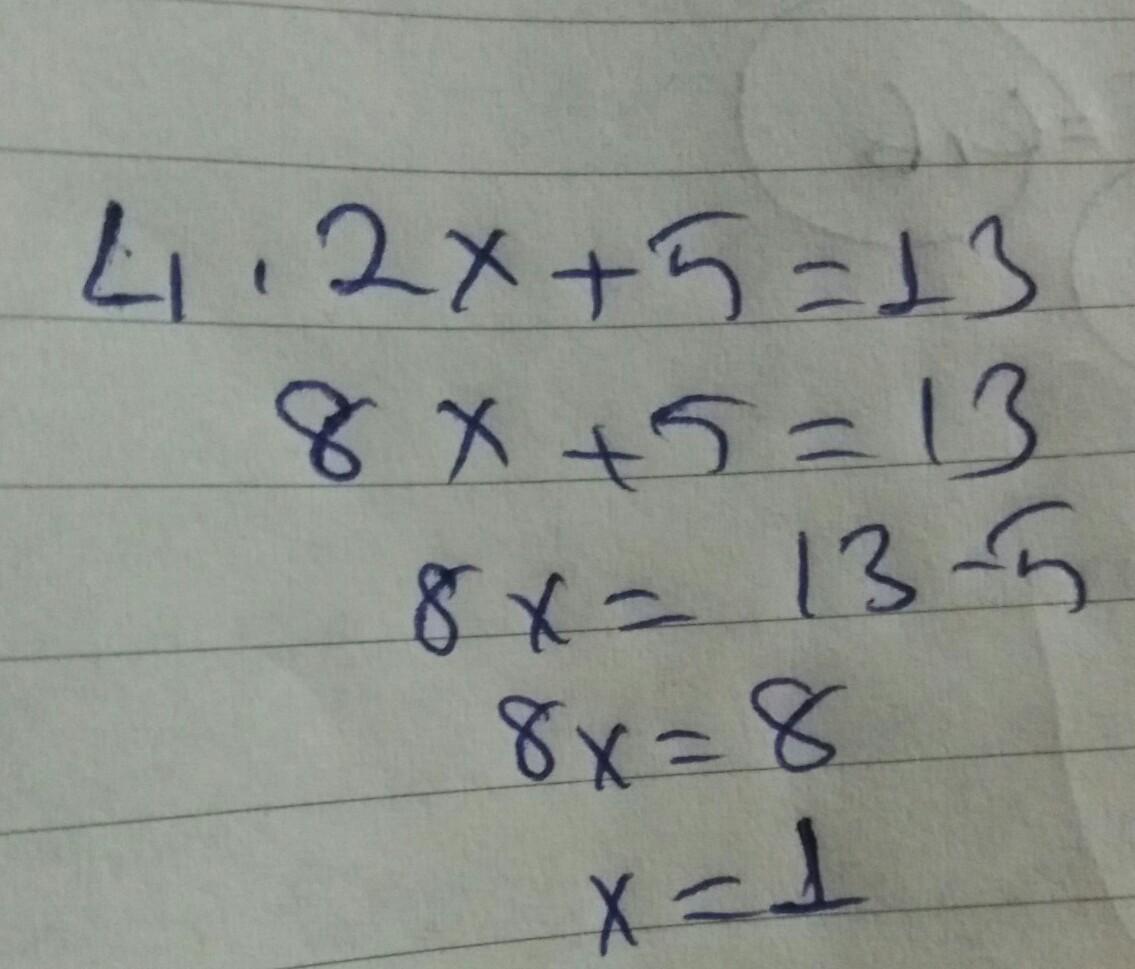 4 · 2x + 5 = 13
8x + 5 = 13
8x = 13 - 5
8x = 8
x = 1